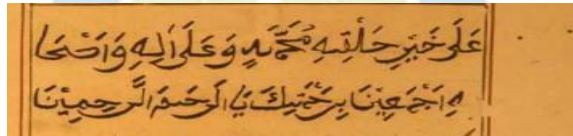 عَلَى خَيْرِ خَلْقِهِ مُحَمَّدٍ وَعَلَى اٰلِهِ وَاَصْحَا
بِهِ اَجْمَعِيْنَا بِرَحْمَتِكَ يَا اَرْحَمَ الرَّحِمِيْنَا